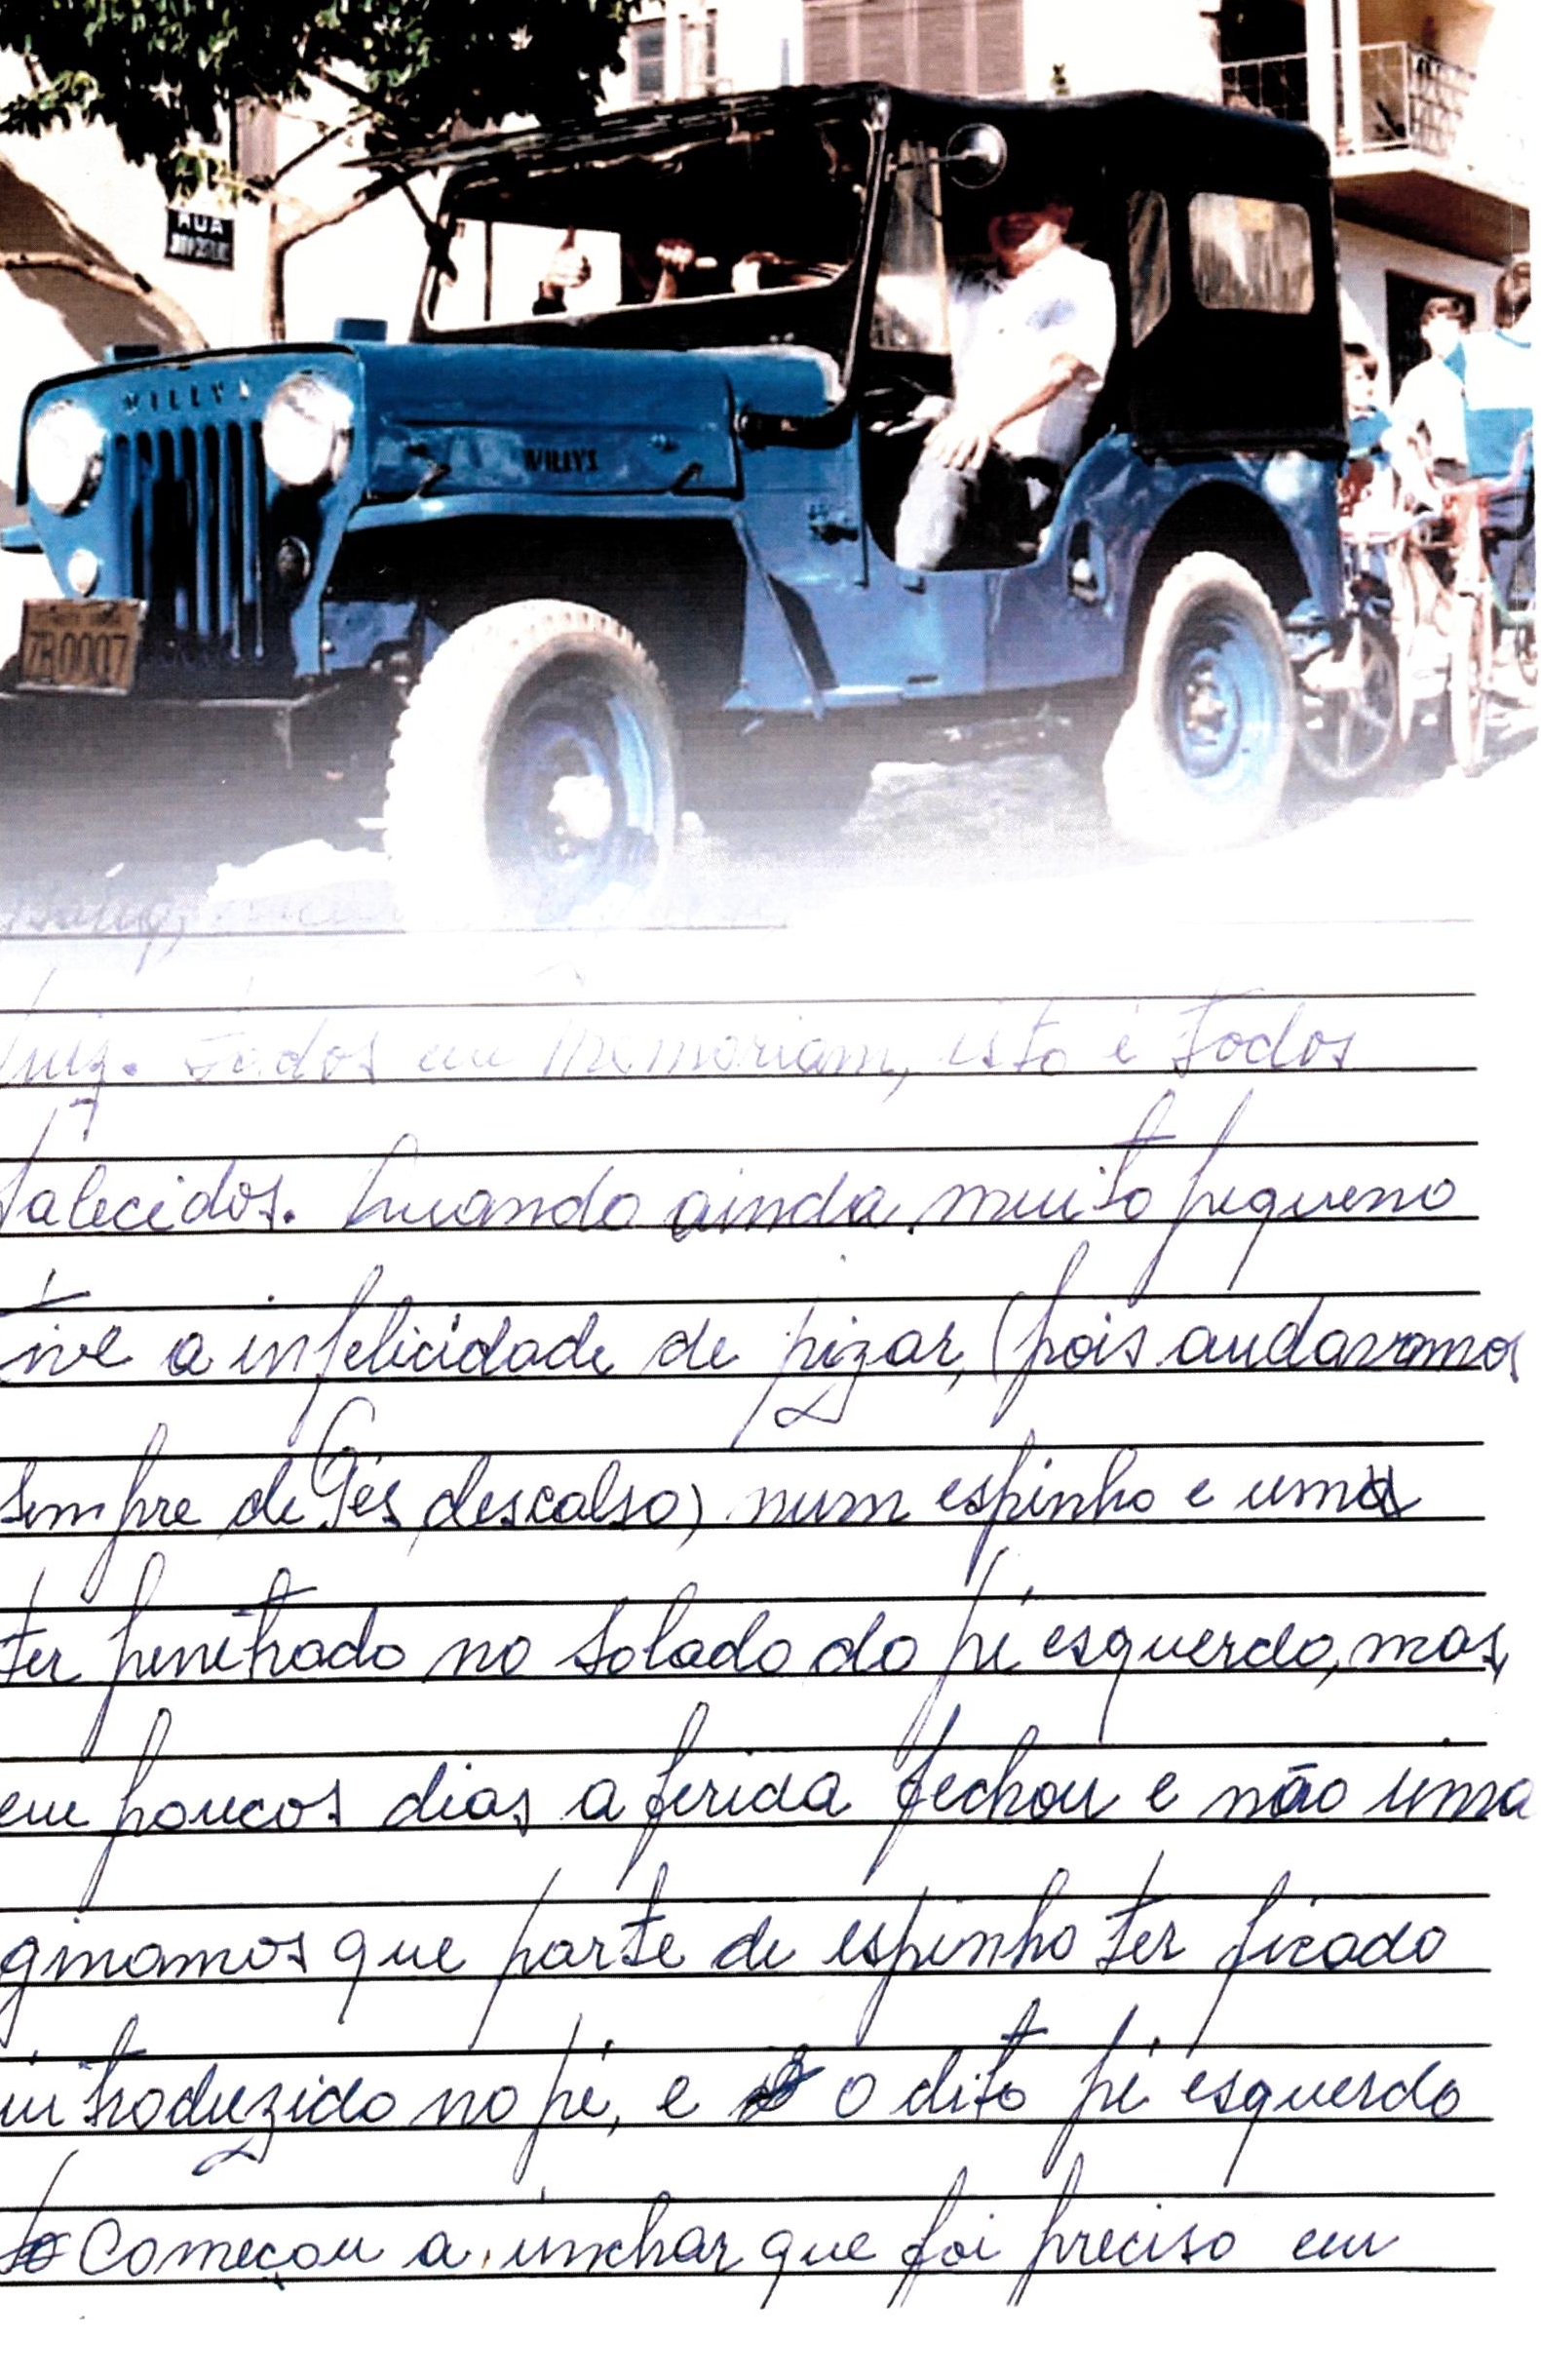 RUA
WILLYS
WILLYS
ZB0007
Luiz. Todos em Memoriam, isto é todos
falecidos. Quando ainda muito pequeno
tive a infelicidade de pizar, (pois andavamos
sempre de Pés descalso) num espinho e uma
ter penetrado no solado do pé esquerdo, mas,
em poucos dias a ferida fechou e não ima
ginamos que parte de espinho ter ficado
introduzido no pé, e o dito pé esquerdo
começou a inchar que foi preciso em